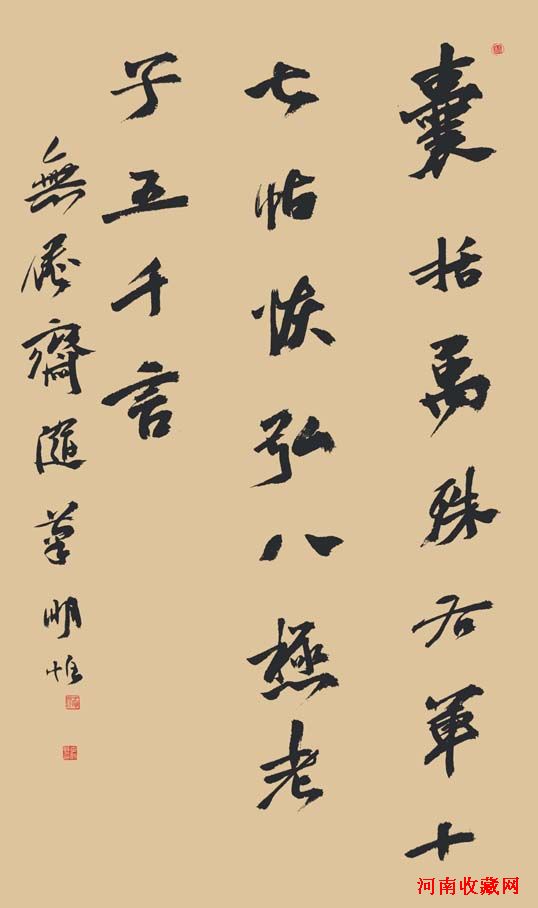 囊括万殊右军十
七帖恢弘八极老
子五千言
無为齋随筆明惟
河南收藏网